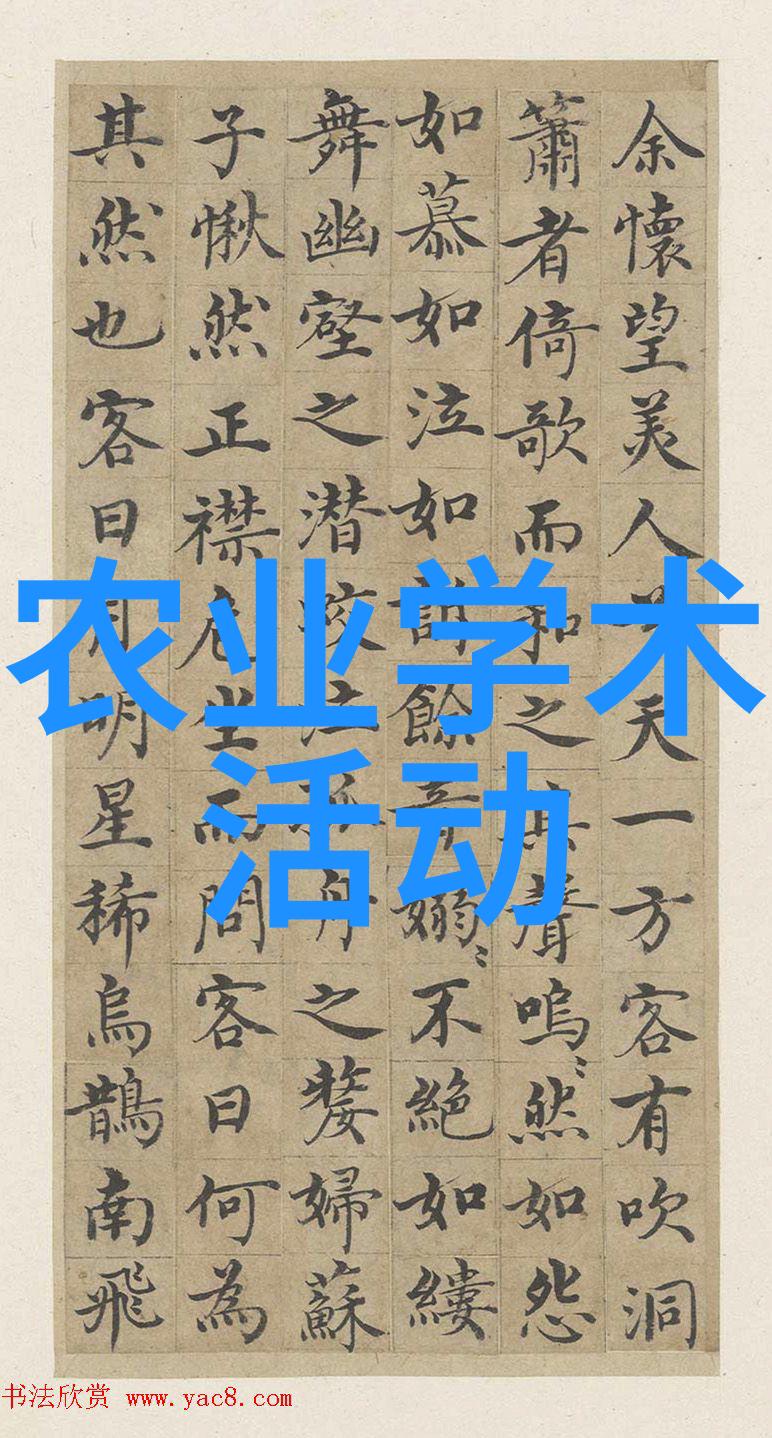 余懷望美人兮天一方客有吹洞
簫者倚歌而和之其聲嗚〻然如怨
如慕如泣如訴餘音嫋〻不絕如縷
舞幽壑之潛蛟泣孤舟之嫠婦蘇
子愀然正襟危坐而問客曰何為
其然也客曰月明星稀烏鵲南飛
农业学术
活动
书法欣赏 www.yac8.com